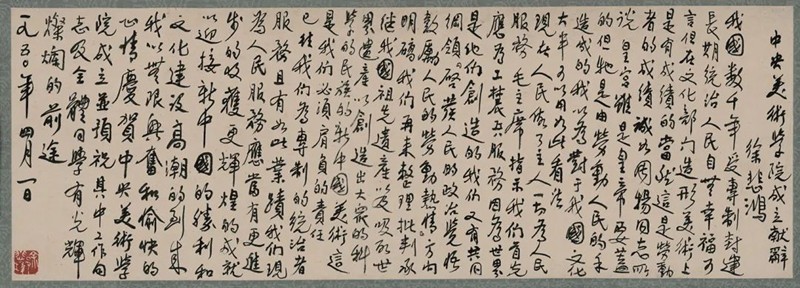 中央美術學院成立獻辭
徐悲鴻
我國數千年受專制封建
長期統治人民自無幸福可
言但在文化部內造形美術上
是有成績的當然這是勞動
者的成績誠如周揚同志所
說皇宮雖是皇帝要蓋
的但牠是由勞動人民的手
造成的我以為對于我國文化
大半可以用如此看法
現在人民做了主人一切為人民
服務毛主席指示我們首先
應為工農兵服務因為世界
是他們創造的我們又有共同
綱領啓發人民的政治覺悟
鼓勵人民的勞動熱情方向
明確我們再來整理批判承
繼我國祖先遺產以及吸收世
界遺產以創造出大眾的科
學的民族的新中國美術這
是我們必須肩負的責任
已往我們為專制的統治者
服務且有如此業蹟我們現
為人民服務應當有更進
步的收穫更輝煌的成就
以迎接新中國的勝利和
文化建設高潮的到來
我以無限興奮和愉快的
心情慶賀中央美術學
院成立並預祝其中工作同
志及全體同學有光輝
燦爛的前途
一九五〇年四月一日